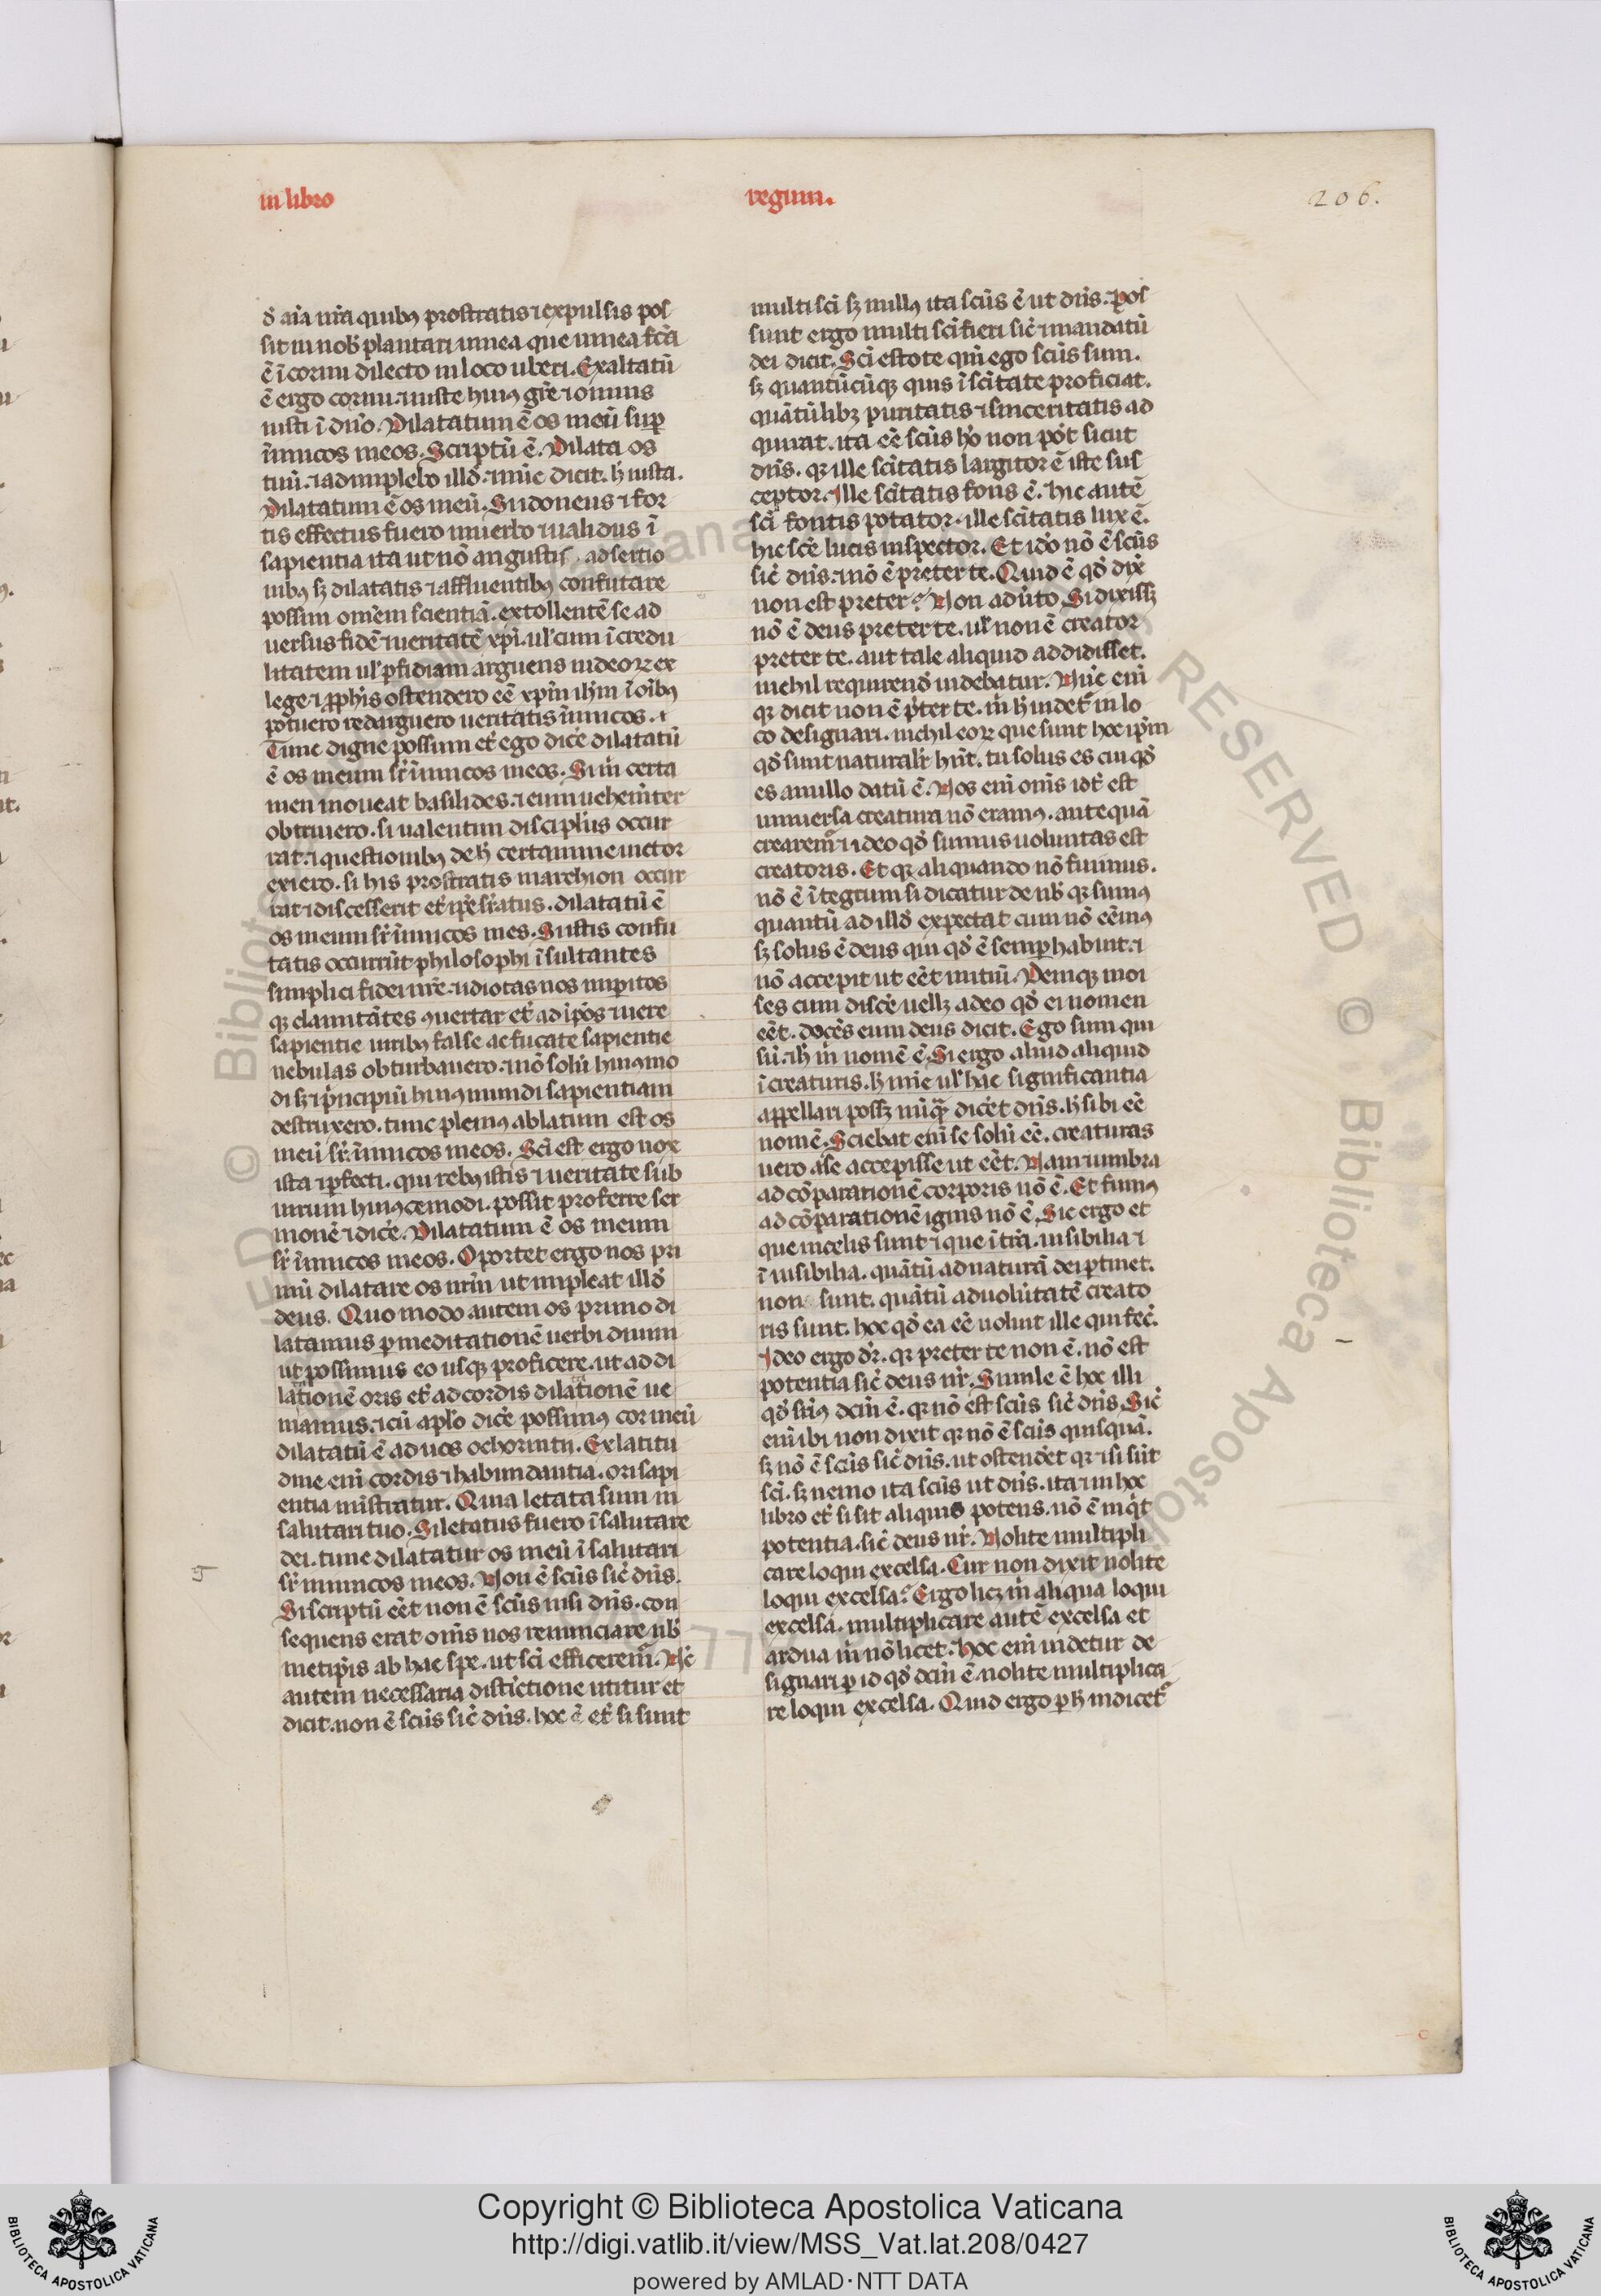 in libro
regum.
206.
ð aīa nr̄a quibꝯ prostratis ⁊ expulsis pos
sit in nob̄ plantari uinea que uinea fcā
ē ī cornu dilecto in loco uberi. Exaltatū
ē ergo cornu ⁊ iuste huiꝯ gr̄e ⁊ omnis
iusti ī dn̄o. Dilatatum ē os meū suꝑ
īimicos meos. Scriptū ē. Dilata os
tuū. ⁊ adimplebo illð. ⁊ nūc dicit. h̄ iusta.
Dilatatum ē os meū. Si idoneus ⁊ for
tis effectus fuero in uerbo ⁊ ualidus ī
sapientia ita ut nō angustis adsertio
nibꝯ sꝫ dilatatis ⁊ affluentibꝯ confutare
possim omēm scientiā. extollentē se ad
uersus fidē ⁊ ueritatē xp̄i. ul̄ cum īcredu
litatem ul̄ ꝑfidiam arguens iudeoꝝ ex
lege ⁊ ꝓph̄is ostendero eē xp̄m ih̄m ī oībꝯ
potuero redarguero ueritatis īimicos. ⁊
Tunc digne possum et̄ ego dicē dilatatū
ē os meum sr̄ īimicos meos. Si in certa
men moueat basilides. ⁊ eum uehem̄ter
obtriuero. si ualentini discipl̄us occur
rat. ⁊ questionibꝯ de h̄ certamine uictor
exiero. si his prostratis marchion occur
rat ⁊ discesserit et̄ ip̄e sr̄atus. dilatatū ē
os meum sr̄ īimicos mes. Si istis confu
tatis occurrūt philosophi īsultantes
simplici fidei nr̄e. ⁊ idiotas nos imꝑitos
qꝫ clamitātes ꝯuertar et̄ ad ip̄os ⁊ uere
sapientie uiribꝯ false ac fucate sapientie
nebulas obturbauero. ⁊ nō solū huiꝯ mo
di sꝫ ⁊ prīncipiū huiꝯ mundi sapientiam
destruxero. tunc pleniꝯ ablatum est os
meū sr̄ īimicos meos. Sc̄i est ergo uox
ista ⁊ ꝑfecti. qui rebꝯ istis ⁊ ueritate sub
nixum huiꝯcemodi. possit proferre ser
monē ⁊ dicē. Dilatatum ē os meum
sr̄ īimicos meos. Oportet ergo nos pri
mū dilatare os nr̄m ut impleat illð
deus. Quo modo autem os primo di
latamus ꝑ meditationē uerbi diuini
ut possimus eo usqꝫ proficere. ut ad di
lationē oris et̄ ad cordis dilationē ue
niamus. ⁊ cū apl̄o dicē possimꝯ cor meū
dilatatū ē ad uos ochorintii. Ex latitu
dine eni cordis ⁊ habundantia. ori sapi
entia ministratur. Quia letata sum in
salutari tuo. Si letatus fuero ī salutare
dei. tunc dilatatur os meū ī salutari
sr̄ inimicos meos. Non ē sc̄us sic̄ dn̄s.
Si scriptū eēt non ē sc̄us nisi dn̄s. con
sequens erat om̄s nos renunciare nb̄
metip̄is ab hac spe. ut sc̄i efficeremr̄. Nc̄
autem necessaria distīctione utitur et
dicit. non ē sc̄us sic̄ dn̄s. hoc ē et̄ si sunt
multi sc̄i sꝫ nullꝯ ita sc̄us ē ut dn̄s. Pos
sunt ergo multi sc̄i fieri sic̄ ⁊ mandatū
dei dicit. Sc̄i estote qm̄ ego sc̄us sum.
sꝫ quantūcūqꝫ quis ī sc̄itate proficiat.
quātūlibꝫ puritatis ⁊ sinceritatis ad
quirat. ita eē sc̄us hō non pōt sicut
dn̄s. qr ille sc̄itatis largitor ē iste sus
ceptor. Ille sc̄itatis fons ē. hic autē
sc̄i fontis potator. ille sc̄itatis lux ē.
hic sc̄e lucis inspector. Et ido nō ē sc̄us
sic̄ dn̄s. ⁊ nō ē preter te. Quid ē qð dix̄
non est preter? Non aduīto. Si dixissꝫ
nō ē deus preter te. ul̄ non ē creator
preter te. aut tale aliquid addidisset.
nichil requirendū uidebatur. Nūc eni
qr dicit non ē pr̄ter te. m̄ h̄ uidetr̄ in lo
co designari. nichil eoꝝ que sunt hoc ip̄m
qð sunt naturalr̄ hn̄t. tu solus es cui qð
es a nullo datū ē. Nos eni om̄s idē est
uniuersa creatura nō eramꝯ. antequā
crearemr̄ ⁊ ideo qð sumus uoluntas est
creatoris. Et qr aliquando nō fuimus.
nō ē ītegrum si dicatur de nb̄ qr sumꝯ
quantū ad illð expectat cum nō eēmꝯ
sꝫ solus ē deus qui qð ē semꝑ habuit. ⁊
nō accepit ut eēt initiū. Deniqꝫ moi
ses cum discē uellꝫ a deo qð ei nomen
eēt. docēs eum deus dicit. Ego sum qui
sū. ⁊ h̄ m̄ nomē ē. Si ergo aliud aliquid
ī creaturis. h̄ nūc ul̄ hac significantia
appellari possꝫ nūqā dicēt dn̄s. h̄ sibi eē
nomē. Sciebat eni se solū eē. creaturas
uero a se accepisse ut eēt. Nam ⁊ umbra
ad cōparationē corporis nō ē. Et fumꝯ
ad cōparationē ignis nō ē. Sic ergo et
que in celis sunt ⁊ que ī trā. uisibilia ⁊
īuisibilia. quātū ad naturā dei ꝑtinet.
non sunt. quātū ad uolūtatē creato
ris sunt. hoc qð ea eē uoluit ille qui fec̄.
Ideo ergo dr̄. qr preter te non ē. nō est
potentia sic̄ deus nr̄. Simile ē hoc illi
qð sr̄iꝯ dcm̄ ē. qr nō est sc̄us sic̄ dn̄s. Sic̄
eni ibi non dixit qr nō ē sc̄us quisquā.
sꝫ nō ē sc̄us sic̄ dn̄s. ut ostendēt qr ⁊ si sūt
sc̄i. sꝫ nemo ita sc̄us ut dn̄s. ita ⁊ in hoc
libro et̄ si sit aliquis potens. nō ē inqt
potentia. sic̄ deus nr̄. Nolite multipli
care loqui excelsa. Cur non dixit nolite
loqui excelsa? Ergo licꝫ m̄ aliqua loqui
excelsa. multiplicare autē excelsa et
ardua m̄ nō licet. Hoc eni uidetur de
signari ꝑ id qð dcm̄ ē. nolite multiplica
re loqui excelsa. Quid ergo ꝑ h̄ indicetr̄
Copyright © Biblioteca Apostolica Vaticana
http://digi.vatlib.it/view/MSS_Vat.lat.208/0427
powered by AMLAD·NTT DATA
BIBLIOTECA APOSTOLICA VATICANA
BIBLIOTECA APOSTOLICA VATICANA